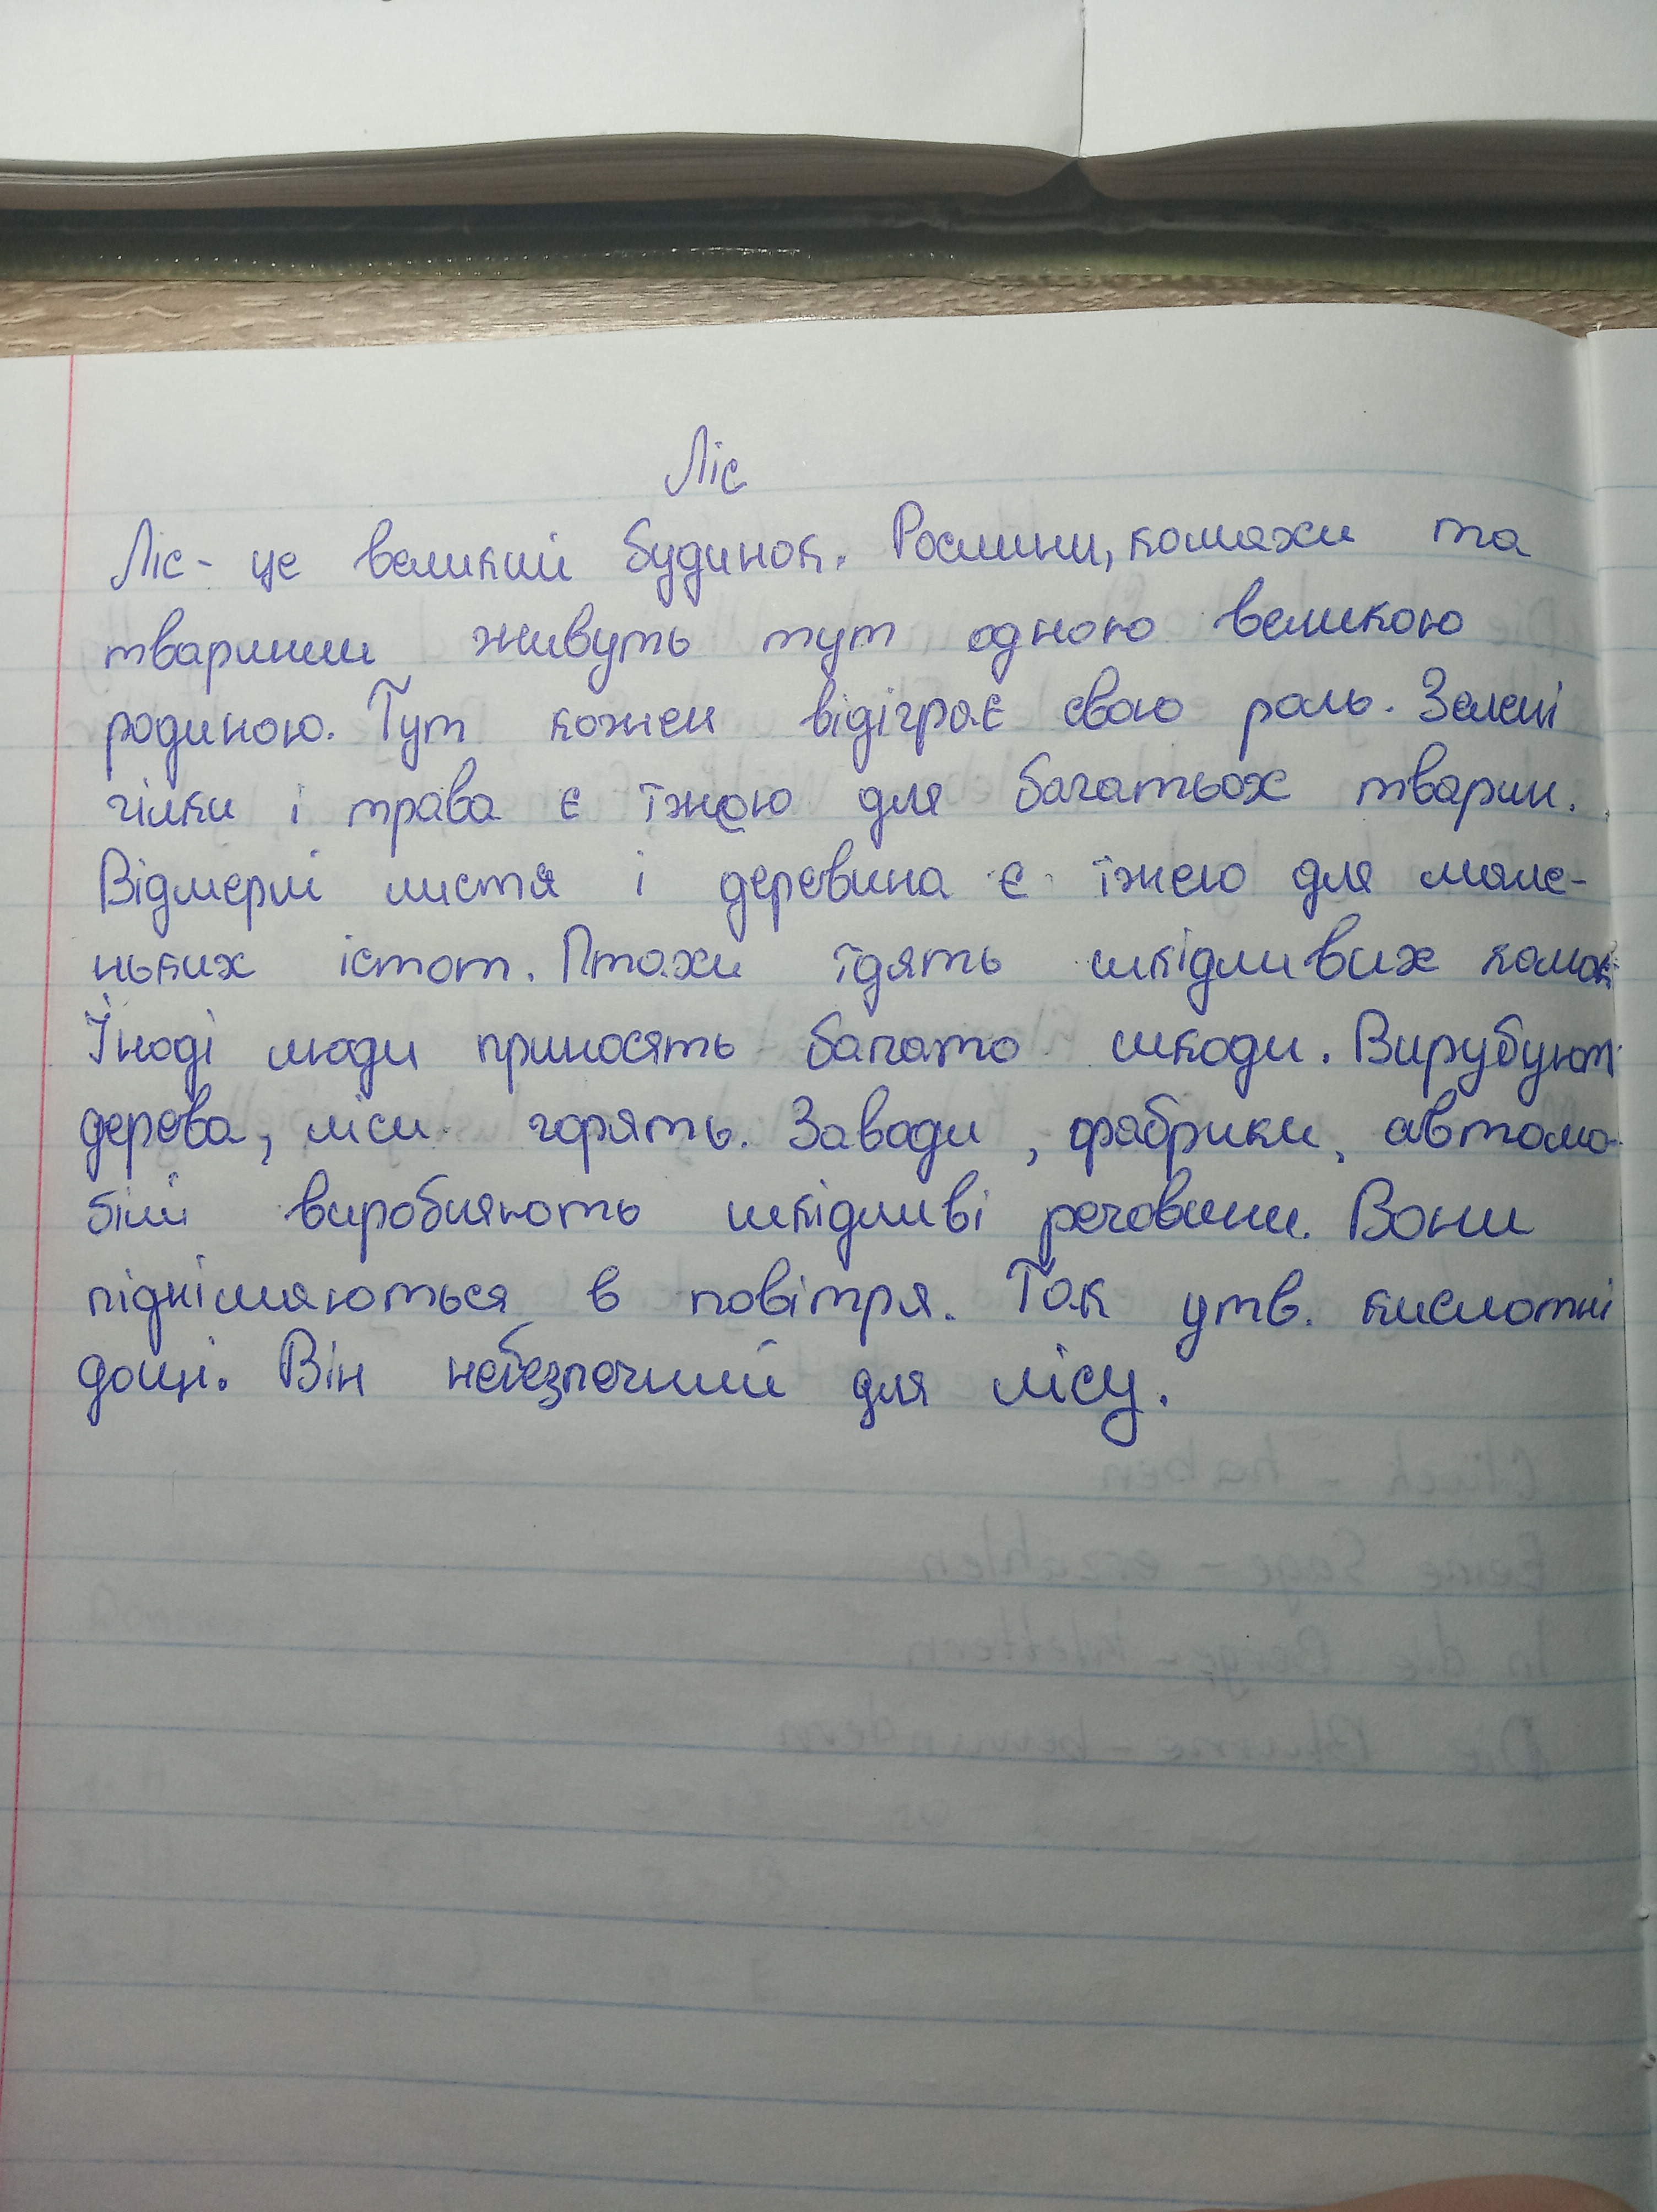 Ліс
Ліс - це великий будинок. Рослини, комахи та
тварини живуть тут одною великою
родиною. Тут кожен відіграє свою роль. Зелені
гілки і трава є їжею для багатьох тварин.
Відмерлі листя і деревина є їжею для мале-
ньких істот. Птахи їдять шкідливих комах.
Іноді люди приносять багато шкоди. Вирубують
дерева, ліси горять. Заводи, фабрики, автомо-
білі виробляють шкідливі речовини. Вони
піднімаються в повітря. Так утв. кислотні
дощі. Він небезпечний для лісу.